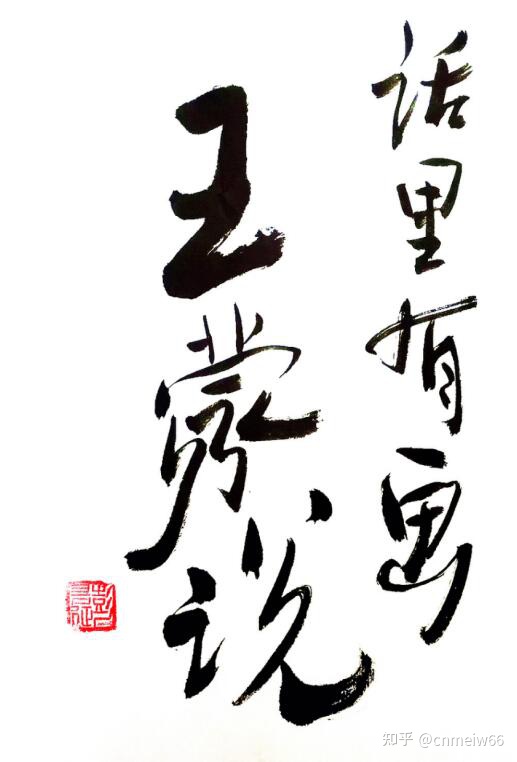 话里有画
王蒙说
知乎 @cnmeiw66